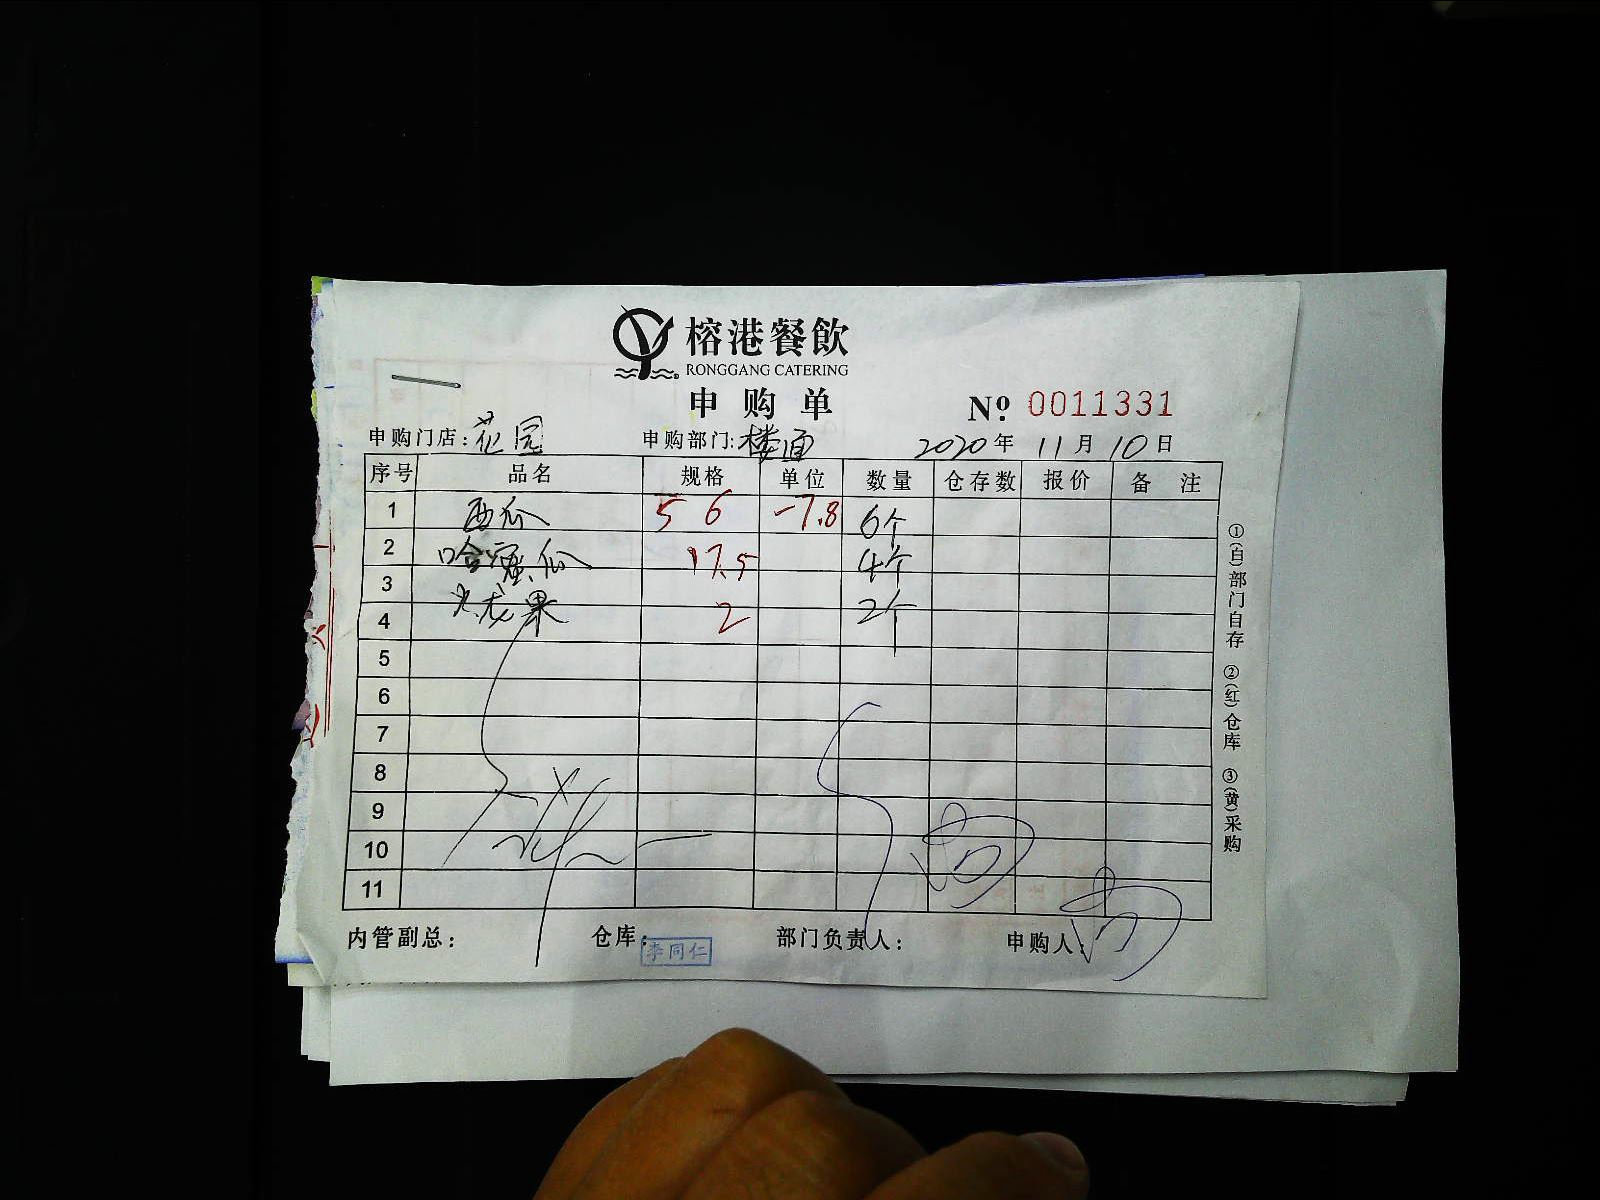 榕港餐飲
RONGGANG CATERING
申购单 Nº 0011331
申购门店:花园 申购部门:楼面 2020年11月10日
序号 品名 规格 单位 数量 仓存数 报价 备注
1 西瓜 56 -7.8 6个
2 哈蜜瓜 17.5 4个
3 火龙果 2 2个
4
5
6
7
8
9
10
11
内管副总: 仓库: 李同仁 部门负责人: 申购人:
①(白)部门自存 ②(红)仓库 ③(黄)采购